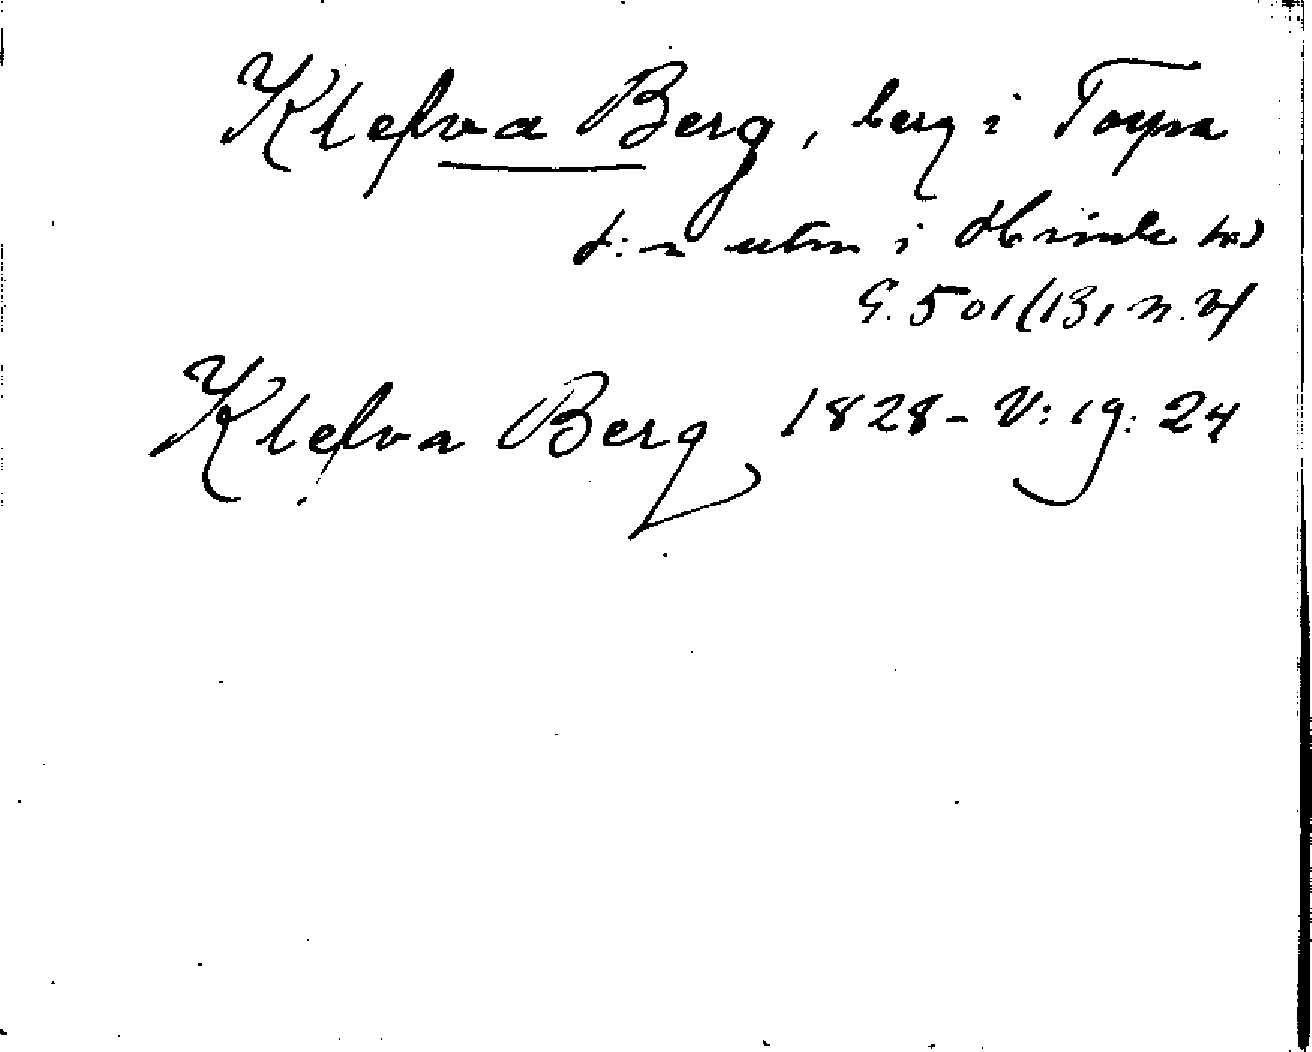 Klefva Berg, berg i Torpa
s:n utm i Kinds hd
G. 501 (131 n. 4)
Klefva Berg 1828 - V: 19: 24